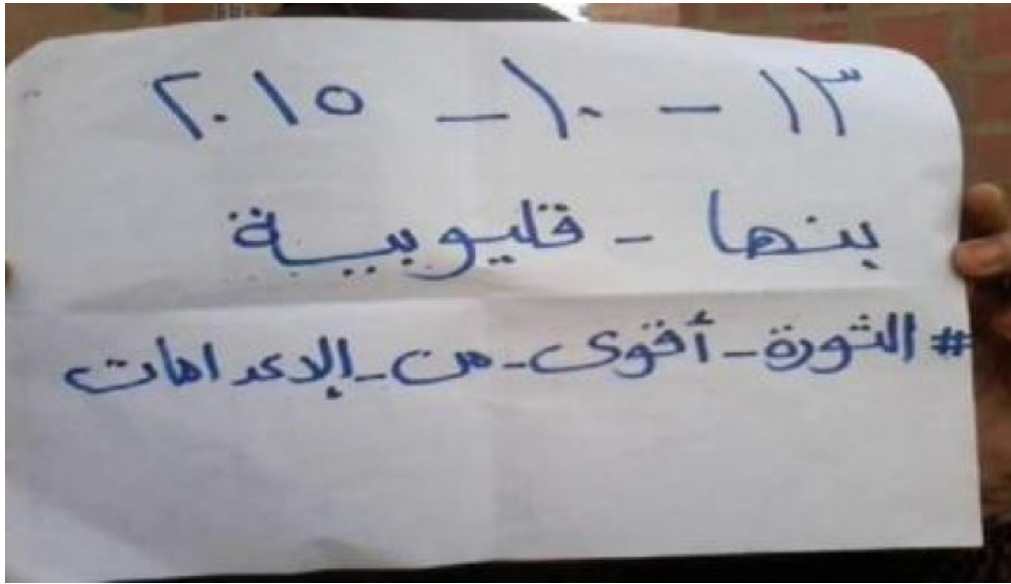 ١٣ - ١٠ - ٢٠١٥
بنها - قليوبية
#الثورة_أقوى_من_الإعدامات